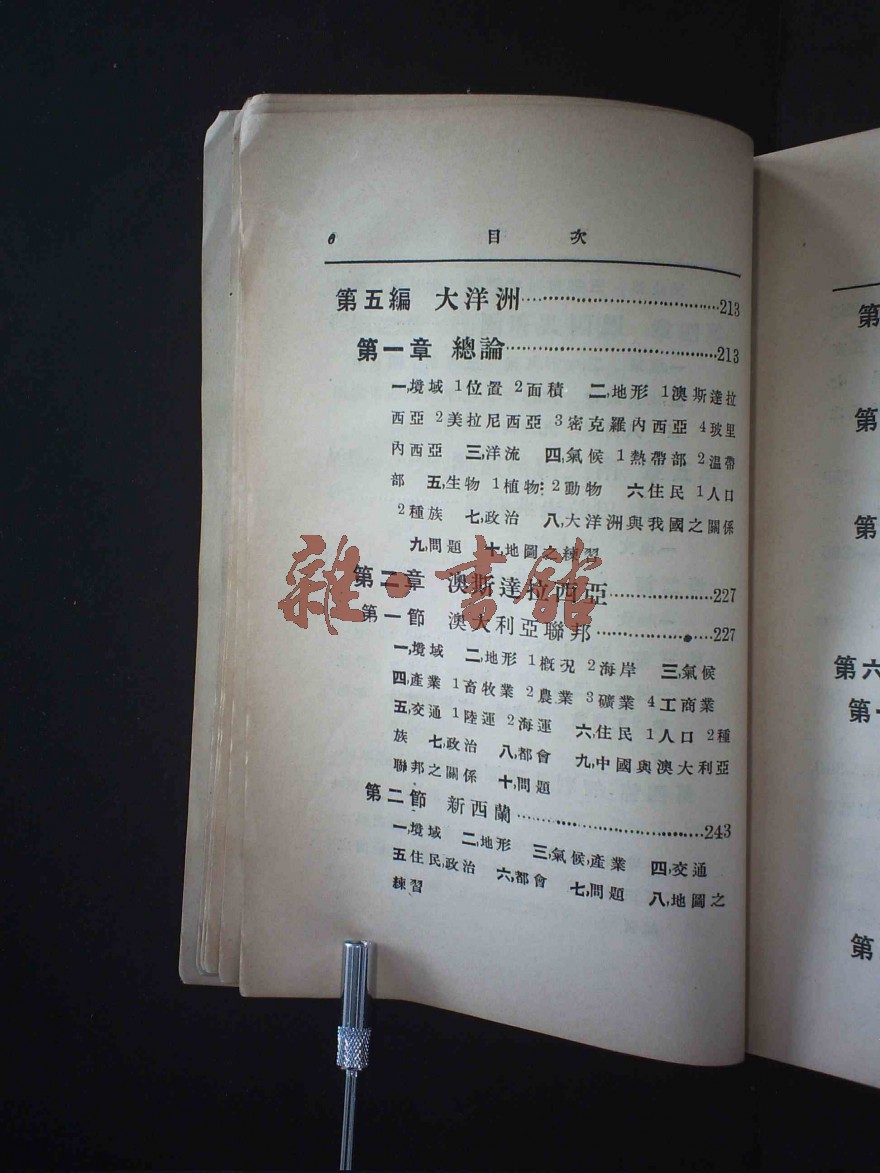 6 目次
第五編 大洋洲……213
第一章 總論……213
一,境域 1位置 2面積 二,地形 1澳斯達拉
西亞 2美拉尼西亞 3密克羅內西亞 4玻里
內西亞 三,洋流 四,氣候 1熱帶部 2溫帶
部 五,生物 1植物: 2動物 六住民 1人口
2種族 七,政治 八,大洋洲與我國之關係
九,問題 十,地圖之練習
第二章 澳斯達拉西亞……227
第一節 澳大利亞聯邦……227
一,境域 二,地形 1概況 2海岸 三,氣候
四,產業 1畜牧業 2農業 3礦業 4工商業
五,交通 1陸運 2海運 六,住民 1人口 2種
族 七,政治 八,都會 九,中國與澳大利亞
聯邦之關係 十,問題
第二節 新西蘭……243
一,境域 二,地形 三,氣候,產業 四,交通
五住民,政治 六,都會 七,問題 八,地圖之
練習
雜·書館
第
第
第
第六
第一
第